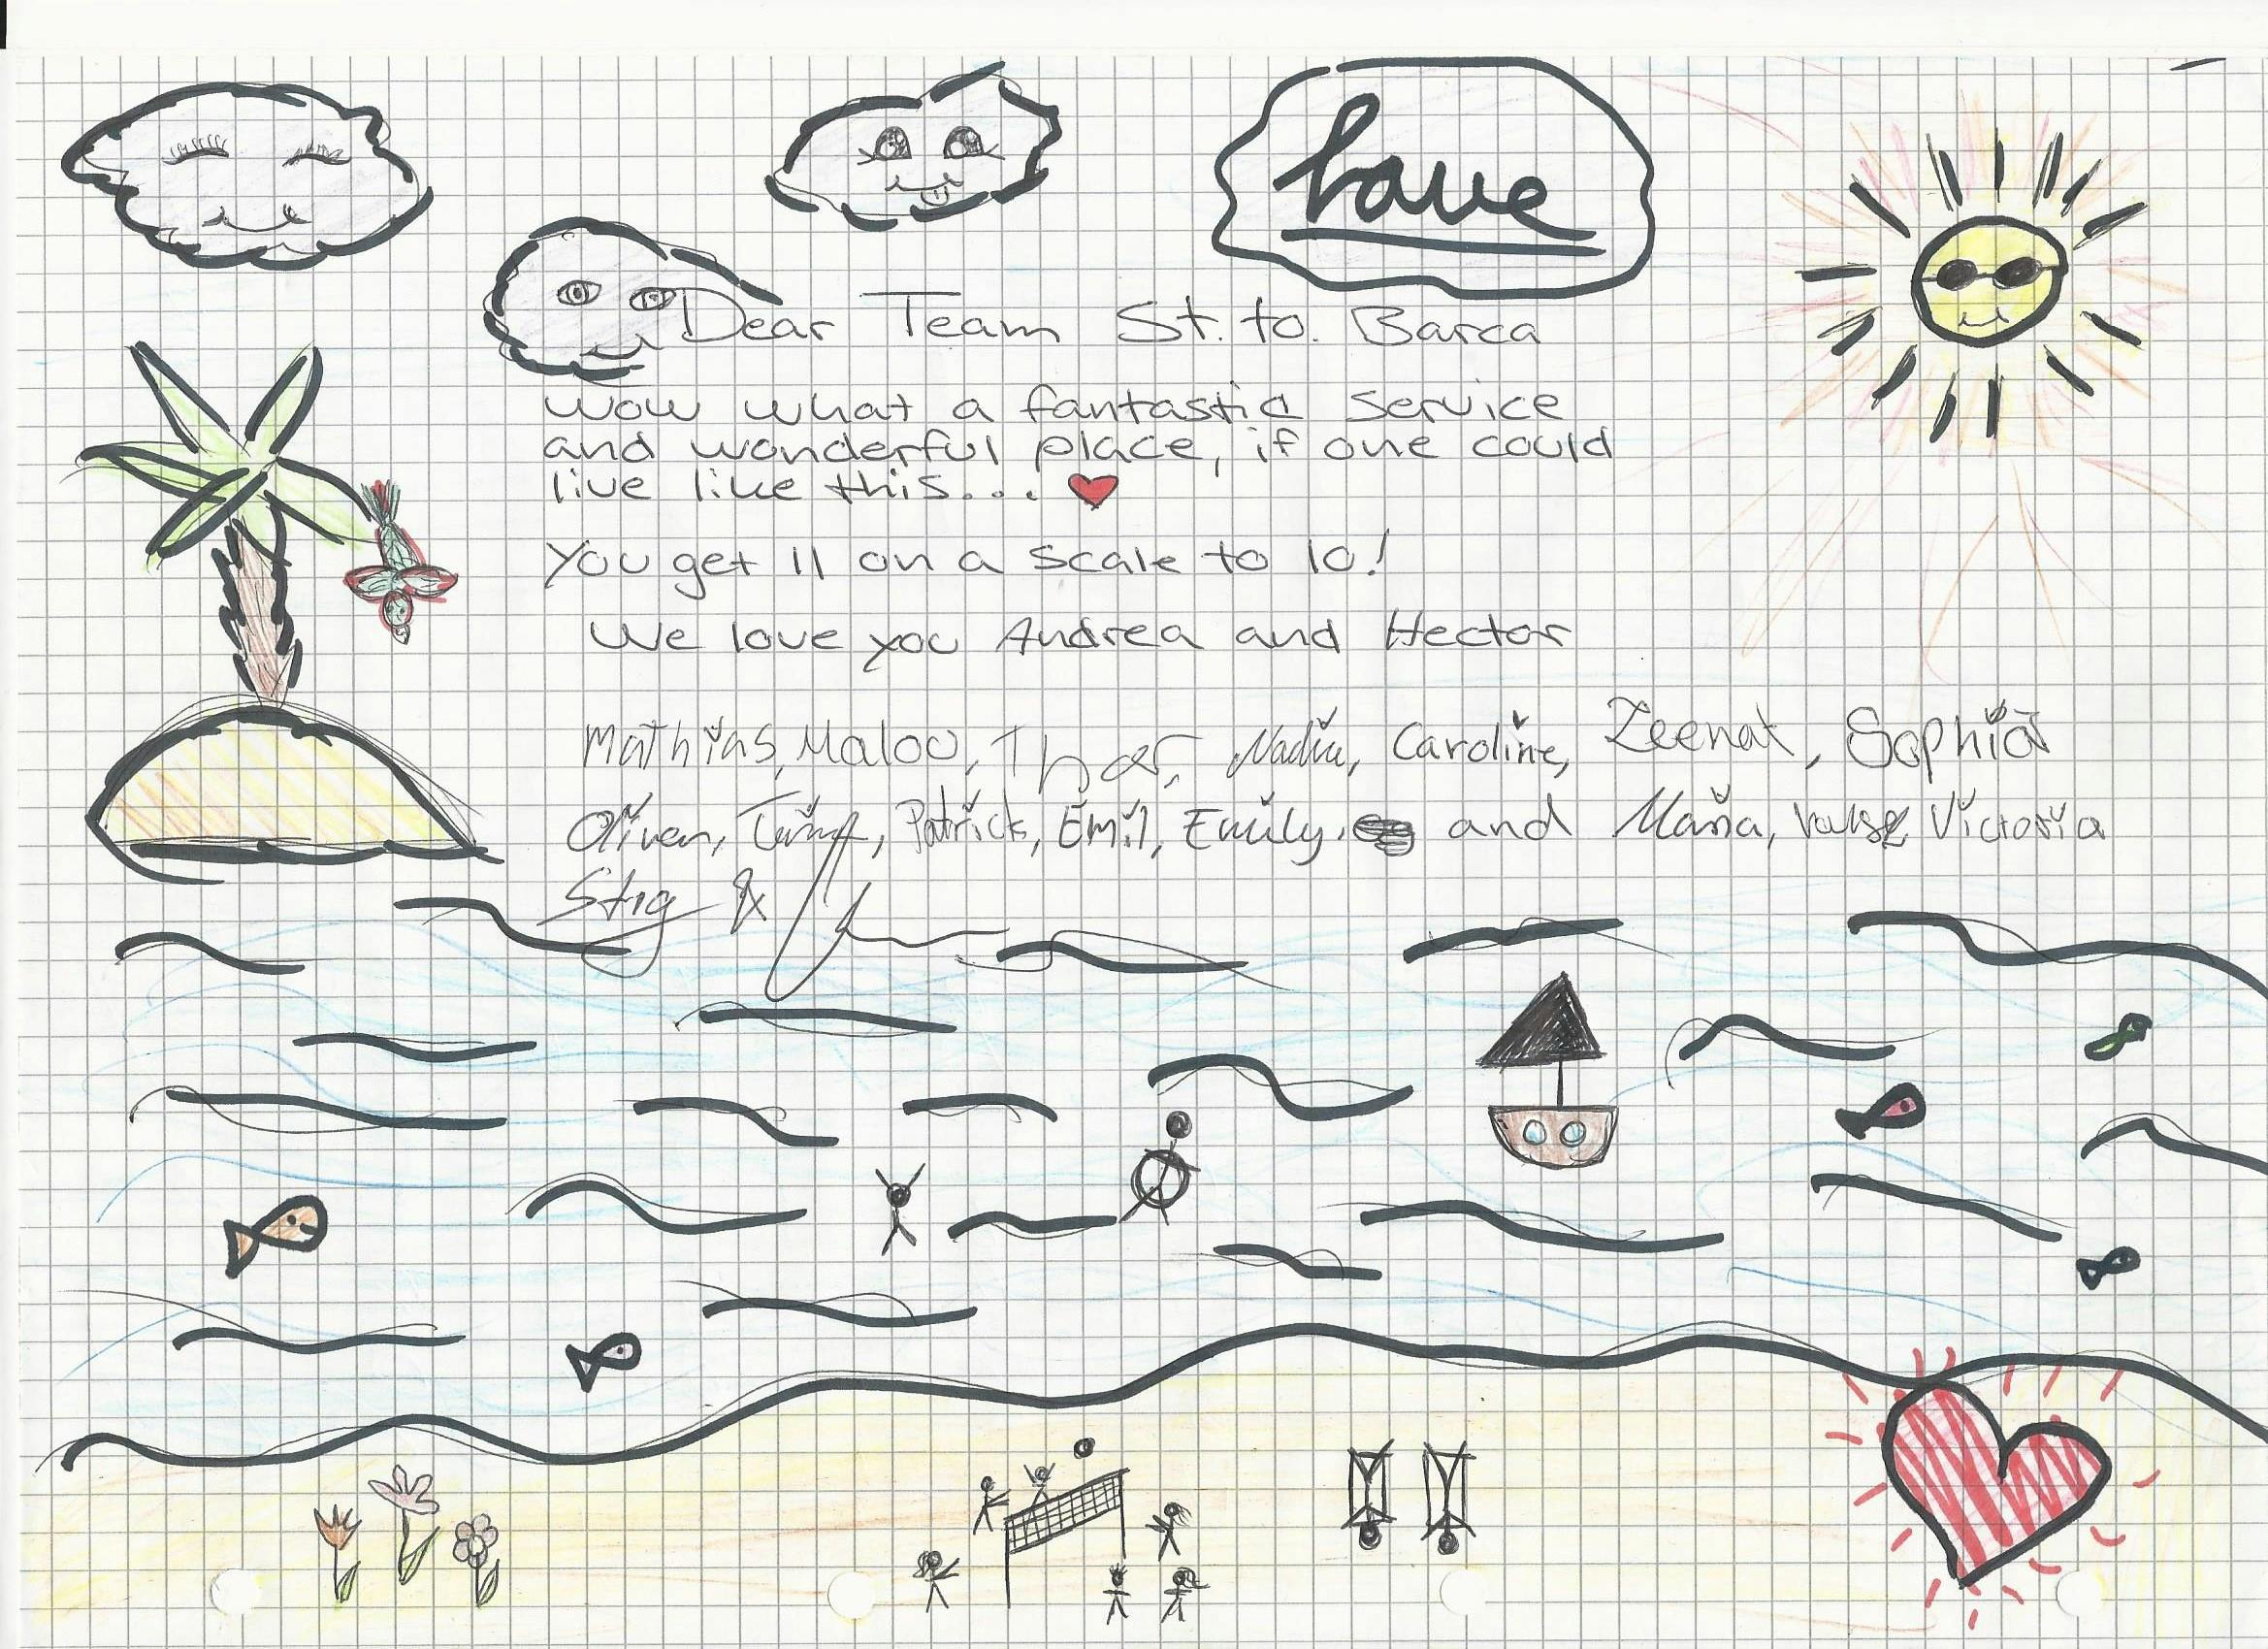 have
Dear Team St. to. Barca
wow what a fantastic service
and wonderful place, if one could
live like this...
You get 11 on a scale to 10!
We love you Andrea and Hector
Mathias, Malou, Thor, Nadia, Caroline, Zeenat, Sophia
Oliver, Patrick, Emil, Emily, and Maria, Victoria
Stig &